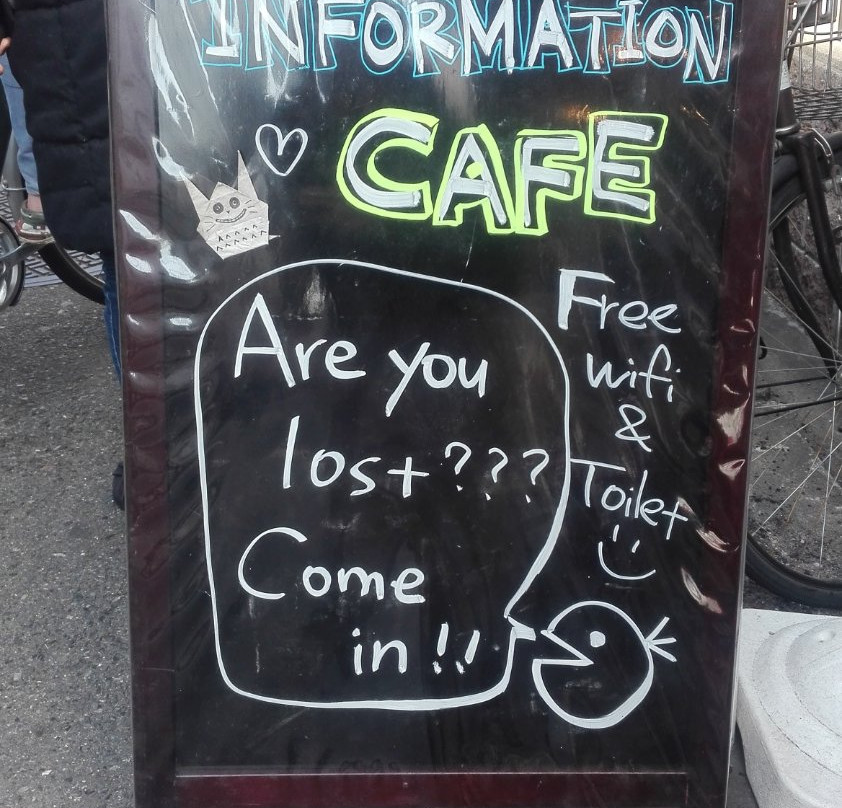 INFORMATION
CAFE
Are you
lost ???
Come
in !!
Free
wifi
&
Toilet